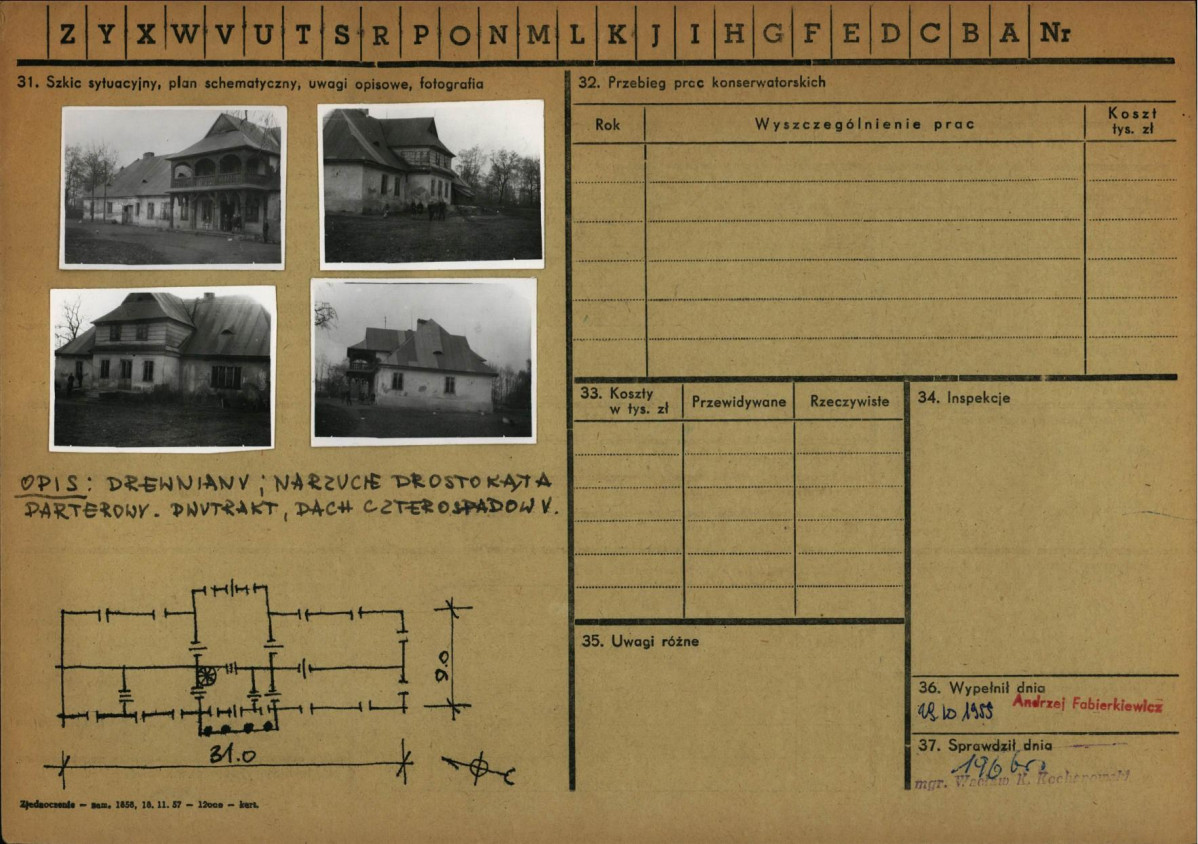 Z Y X W V U T S R P O N M L K J I H G F E D C B A Nr
31. Szkic sytuacyjny, plan schematyczny, uwagi opisowe, fotografia
OPIS: DREWNIANY; NARZUCIE PROSTOKĄTA
PARTEROWY. DWUTRAKT, DACH CZTEROSPADOWY.
9.0
31.0
Zjednoczenie — zam. 1656, 16. 11. 57 — 12000 — kart.
32. Przebieg prac konserwatorskich
Rok Wyszczególnienie prac Koszt
tys. zł
33. Koszty
w tys. zł
Przewidywane Rzeczywiste
34. Inspekcje
35. Uwagi różne
36. Wypełnił dnia
Andrzej Fabierkiewicz
1959
37. Sprawdził dnia
196
mgr. Wacław K. Kochanowski